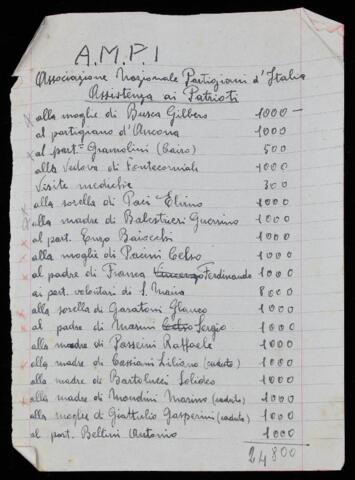 A.M.P.I
Associazione Nazionale Partigiani d'Italia
Assistenza ai Patrioti
alla moglie di Busca Gilbero 1000-
al partigiano d'Ancona 1000
al part. Gramolini (Cairo) 500
alla Vedova di Fontecorniale 1000
Visite mediche 300
alla sorella di Paci Elvino 1000
alla madre di Balestrieri Guerrino 1000
al part. Enzo Baiocchi 1000
alla moglie di Pacini Celso 1000
al padre di Franca Vincenzo Ferdinando 1000
ai part. volontari di S. Maria 8000
alla sorella di Garattoni Glauco 1000
al padre di Marini Celso Sergio 1000
alla madre di Passeini Raffaele 1000
alla madre di Cassiani Liliano (caduto) 1000
alla madre di Bartolucci Solideo 1000
alla madre di Mondini Marino (caduto) 1000
alla moglie di Giattulio Gasperini (caduto) 1000
al part. Bellini Antonio 1000
24800